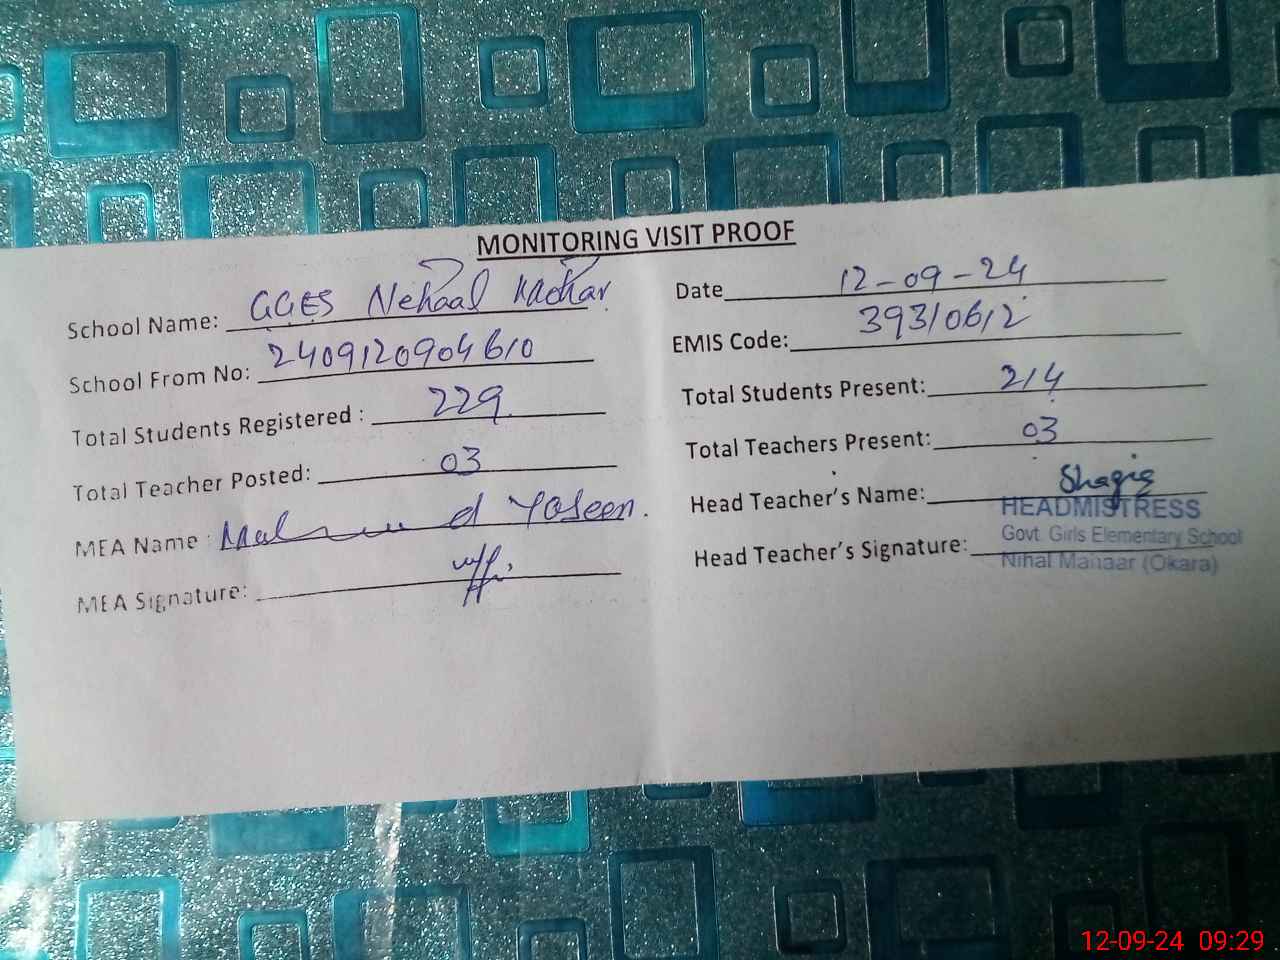 MONITORING VISIT PROOF
School Name: GGES Nehaal
Date 12-09-24
School From No: 2409120904610
EMIS Code: 39310612
Total Students Registered : 229
Total Students Present: 214
Total Teacher Posted: 03
Total Teachers Present: 03
MEA Name : Yaseen.
Head Teacher's Name:
MEA Signature:
Head Teacher's Signature:
HEADMISTRESS
Govt. Girls Elementary School
Nihal Mahaar (Okara)
12-09-24 09:29